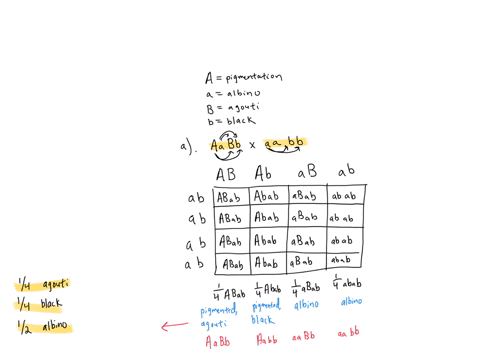 A = pigmentation
a = albino
B = agouti
b = black
a). AaBb x aa bb
AB Ab aB ab
ab ABab Abab aBab abab
ab ABab Abab aBab abab
ab ABab Abab aBab abab
ab ABab Abab aBab abab
1/4 ABab 1/4 Abab 1/4 aBab 1/4 abab
pigmented, agouti pigmented, black albino albino
AaBb Aabb aaBb aabb
1/4 agouti
1/4 black
1/2 albino